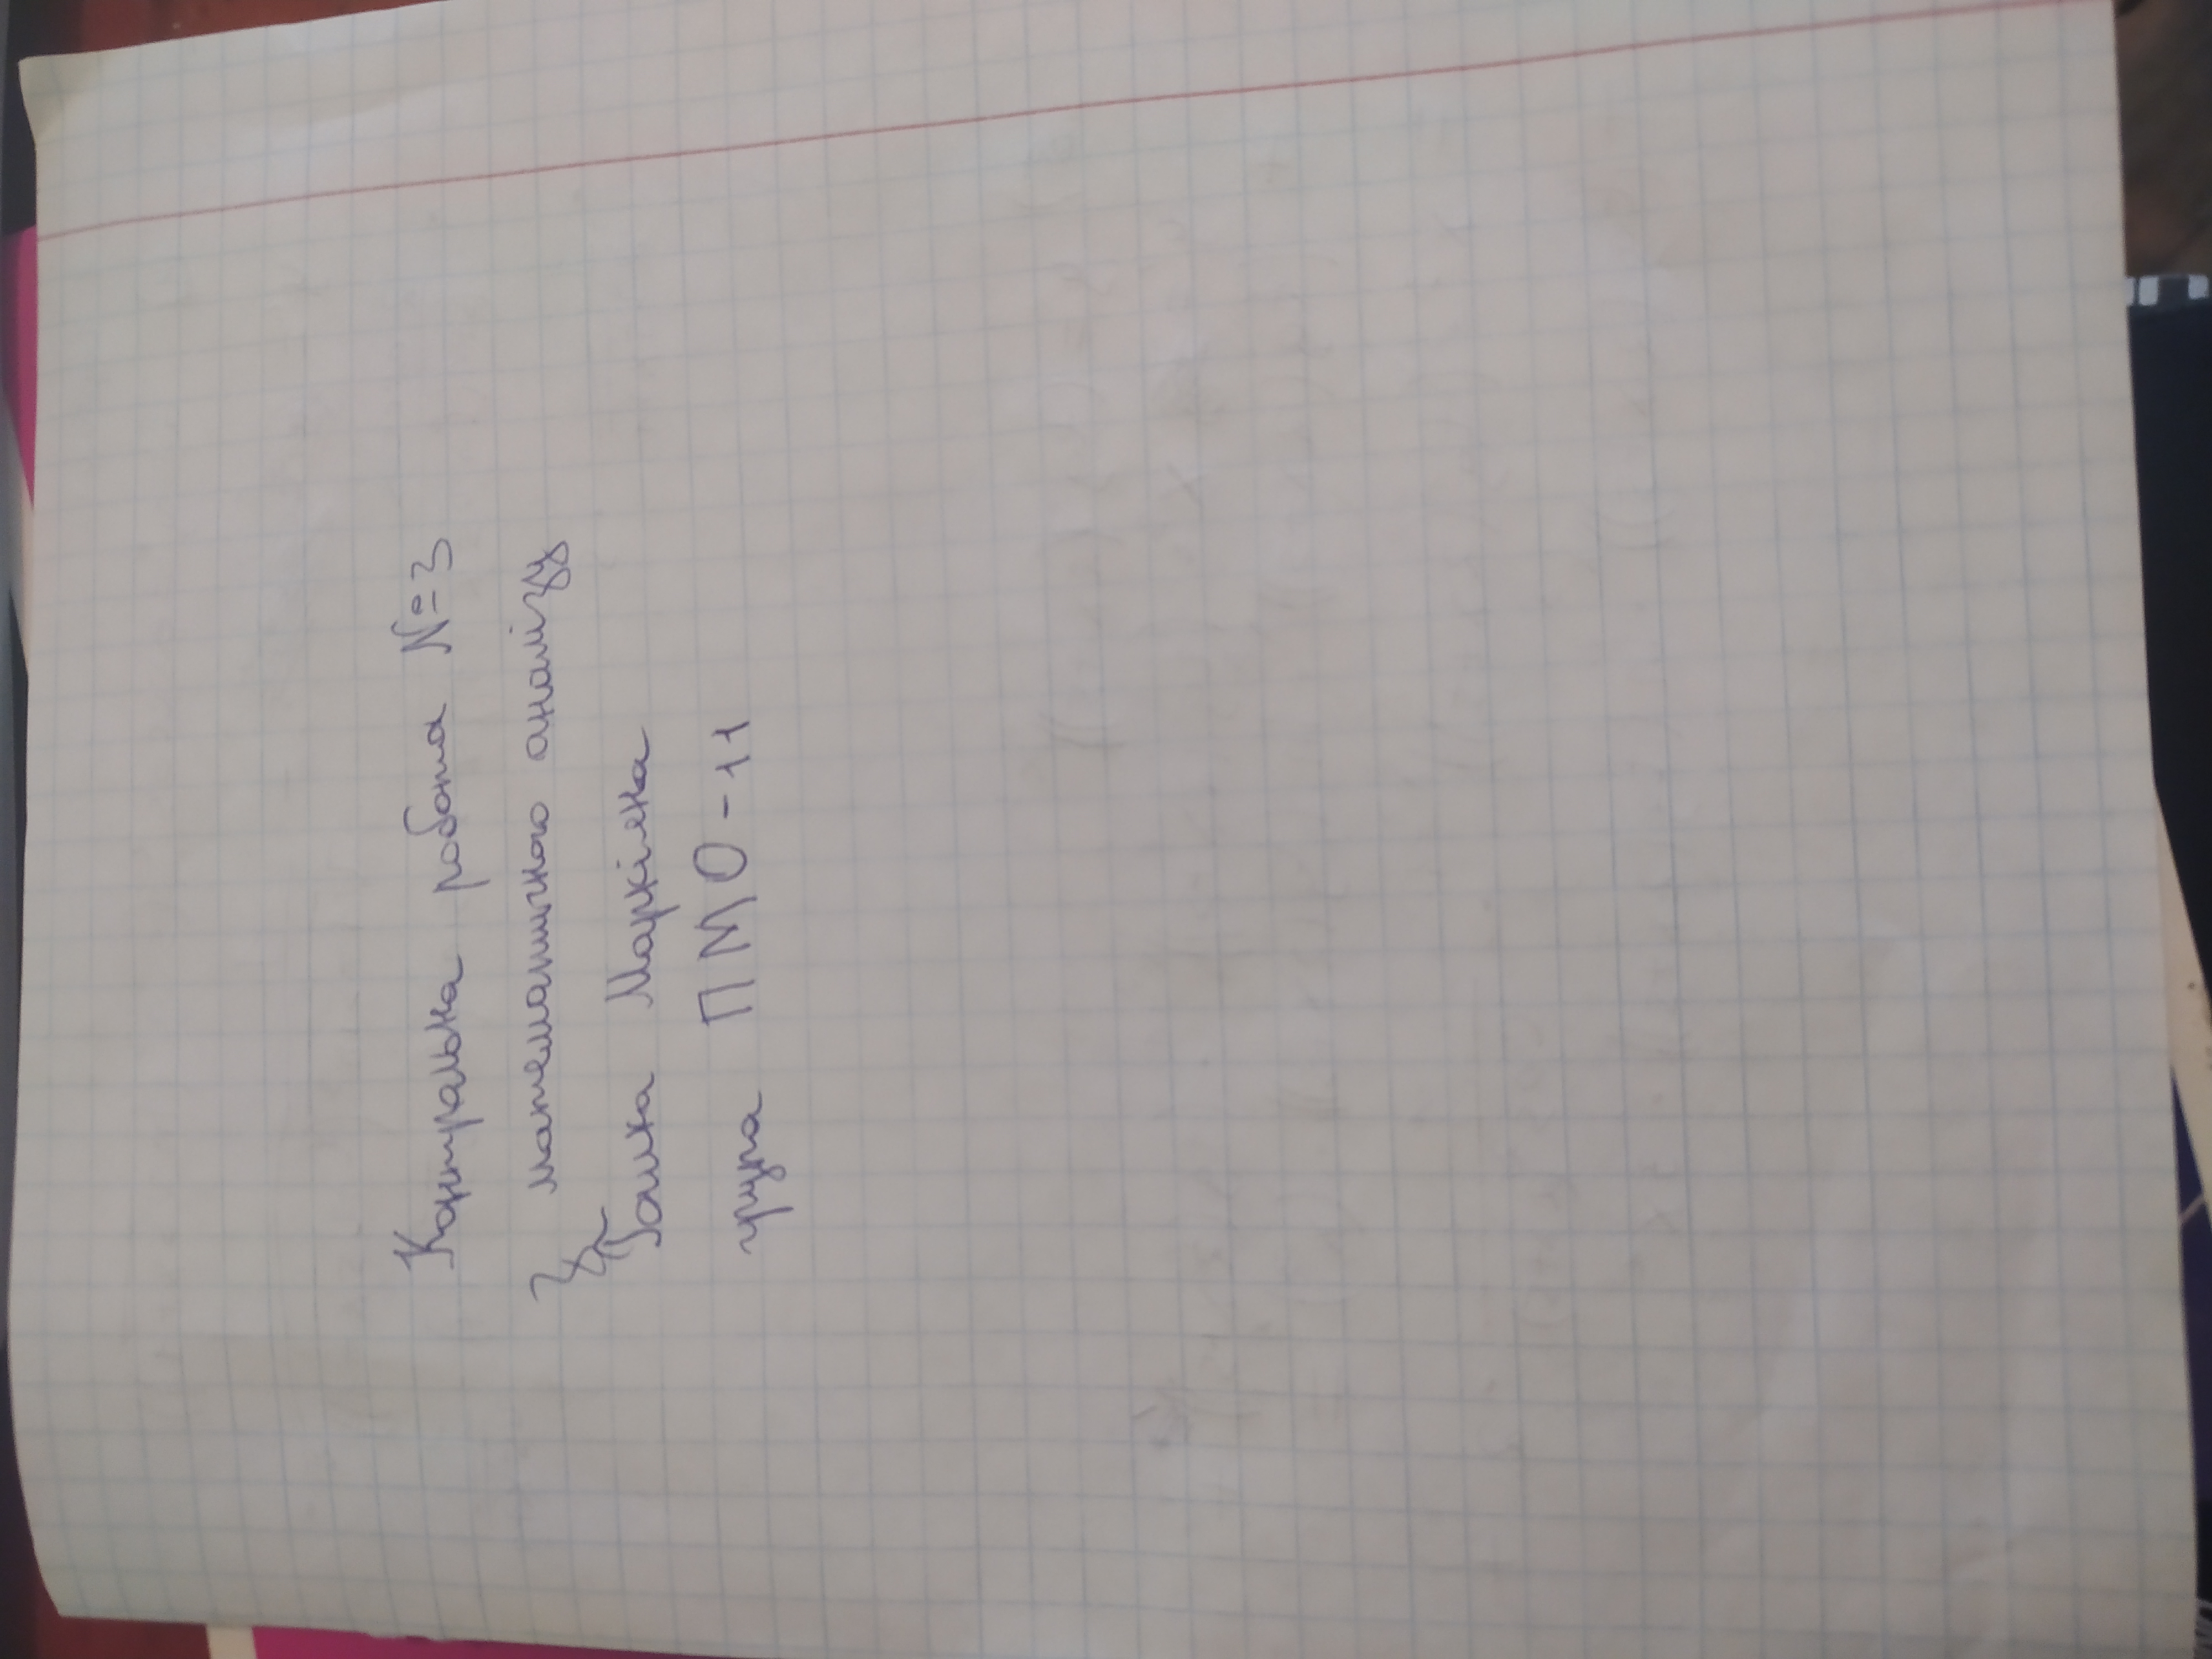 Контрольна робота №3
з математичного аналізу
Маркіяна
група ПМО-11